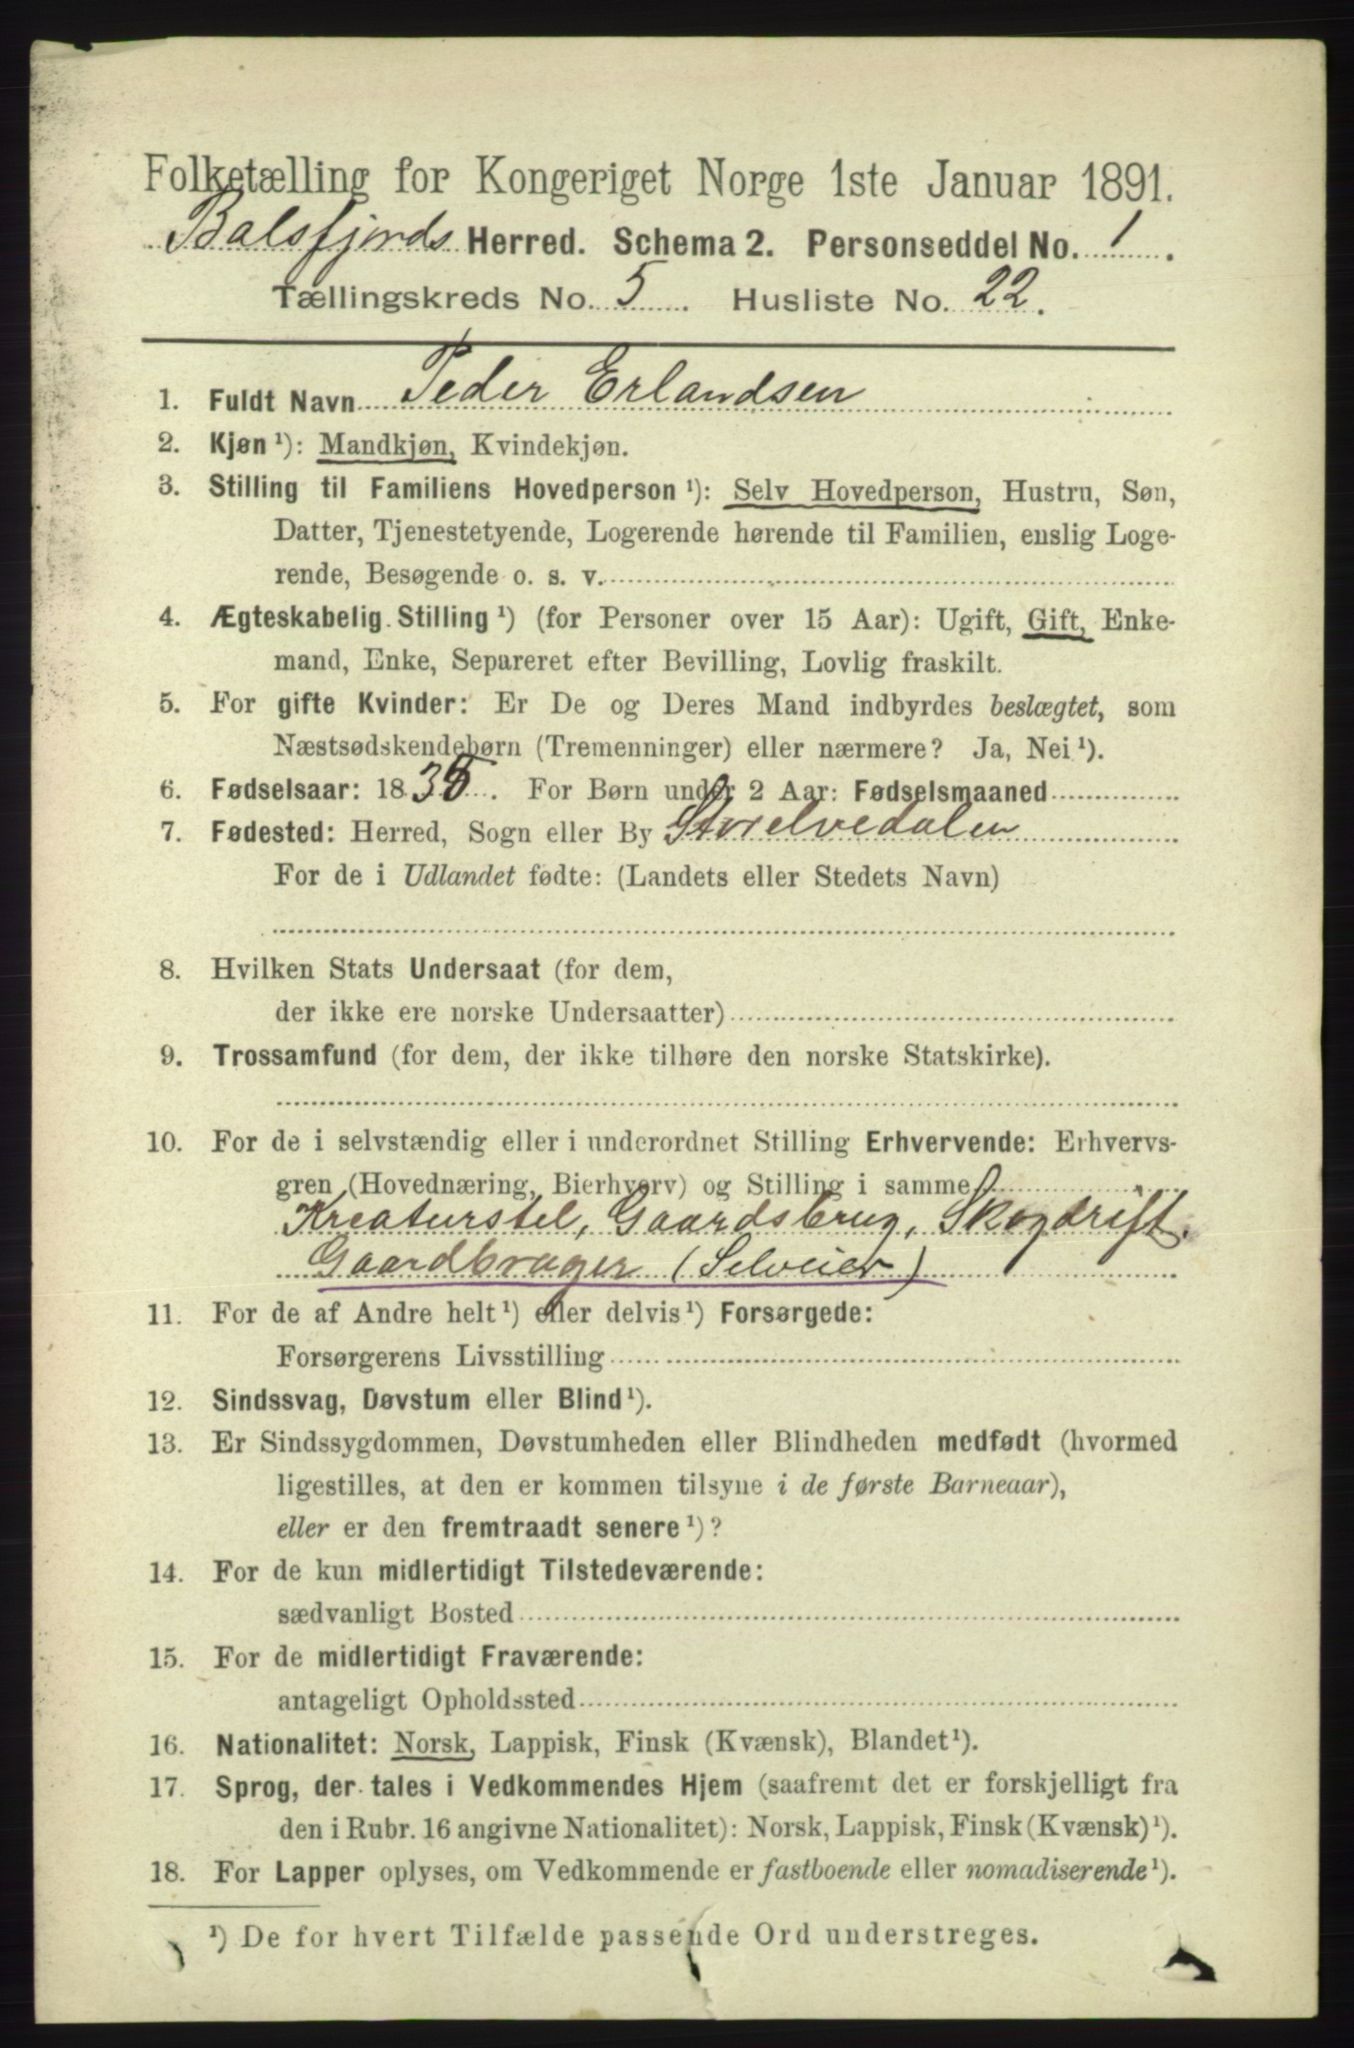 Folketælling for Kongeriget Norge 1ste Januar 1891.
Balsfjords Herred. Schema 2. Personseddel No. 1.
Tællingskreds No. 5. Husliste No. 22.
1. Fuldt Navn Peder Erlandsen
2. Kjøn ¹): Mandkjøn, Kvindekjøn.
3. Stilling til Familiens Hovedperson ¹): Selv Hovedperson, Hustru, Søn,
Datter, Tjenestetyende, Logerende hørende til Familien, enslig Loge-
rende, Besøgende o. s. v.
4. Ægteskabelig Stilling ¹) (for Personer over 15 Aar): Ugift, Gift, Enke-
mand, Enke, Separeret efter Bevilling, Lovlig fraskilt.
5. For gifte Kvinder: Er De og Deres Mand indbyrdes beslægtet, som
Næstsødskendebørn (Tremenninger) eller nærmere? Ja, Nei ¹).
6. Fødselsaar: 1835. For Børn under 2 Aar: Fødselsmaaned
7. Fødested: Herred, Sogn eller By Storelvedalen
For de i Udlandet fødte: (Landets eller Stedets Navn)
8. Hvilken Stats Undersaat (for dem,
der ikke ere norske Undersaatter)
9. Trossamfund (for dem, der ikke tilhøre den norske Statskirke).
10. For de i selvstændig eller i underordnet Stilling Erhvervende: Erhvervs-
gren (Hovednæring, Bierhverv) og Stilling i samme
Kreaturstel, Gaardsbrug, Skogdrift.
Gaardbruger (Selveier)
11. For de af Andre helt ¹) eller delvis ¹) Forsørgede:
Forsørgerens Livsstilling
12. Sindssvag, Døvstum eller Blind ¹).
13. Er Sindssygdommen, Døvstumheden eller Blindheden medfødt (hvormed
ligestilles, at den er kommen tilsyne i de første Barneaar),
eller er den fremtraadt senere ¹)?
14. For de kun midlertidigt Tilstedeværende:
sædvanligt Bosted
15. For de midlertidigt Fraværende:
antageligt Opholdssted
16. Nationalitet: Norsk, Lappisk, Finsk (Kvænsk), Blandet ¹).
17. Sprog, der tales i Vedkommendes Hjem (saafremt det er forskjelligt fra
den i Rubr. 16 angivne Nationalitet): Norsk, Lappisk, Finsk (Kvænsk) ¹).
18. For Lapper oplyses, om Vedkommende er fastboende eller nomadiserende ¹).
¹) De for hvert Tilfælde passende Ord understreges.